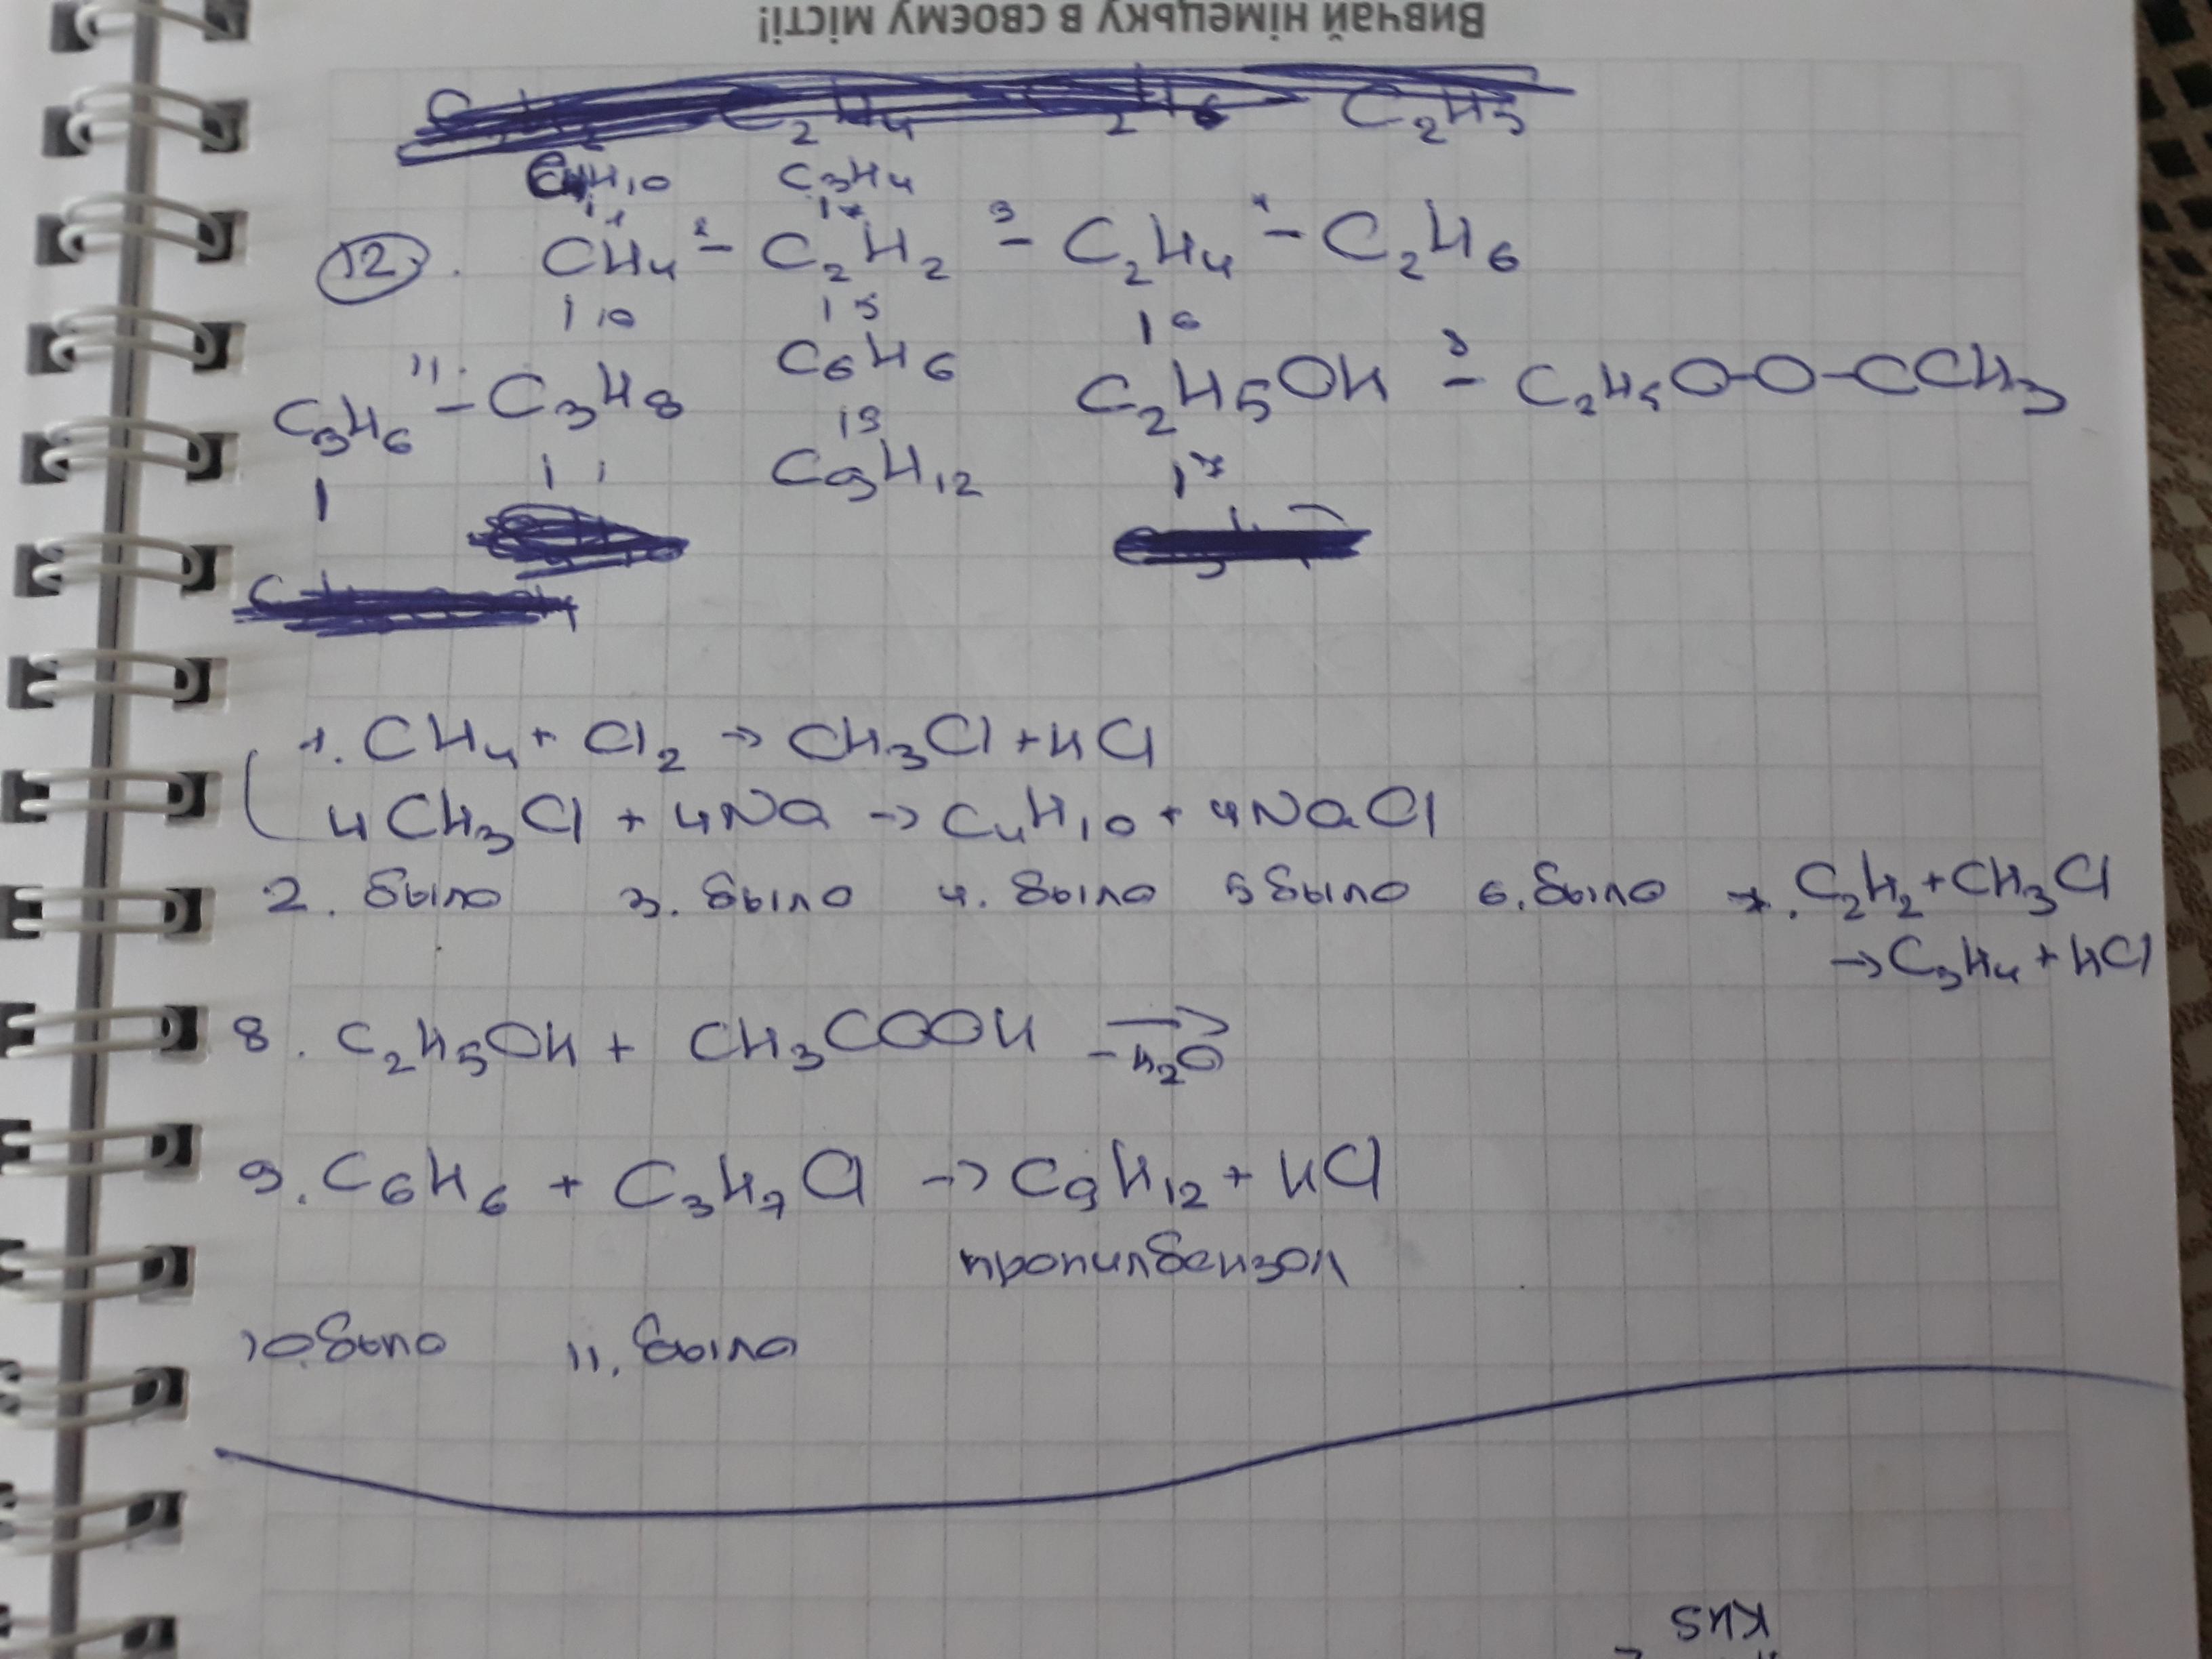 Вивчай німецьку в своєму місті!
C₂H₄ C₂H₆ C₂H₅
C₄H₁₀ C₃H₄
| 1 | 7
12. CH₄ 2– C₂H₂ 3– C₂H₄ 4– C₂H₆
| 10 | 5 | 6
C₃H₆ 11– C₃H₈ C₆H₆ C₂H₅OH 8– C₂H₅O–O–CCH₃
| | | 9 C₉H₁₂ | 7
1. CH₄ + Cl₂ → CH₃Cl + HCl
4CH₃Cl + 4Na → C₄H₁₀ + 4NaCl
2. было 3. было 4. было 5 было 6. было 7. C₂H₂ + CH₃Cl
→ C₃H₄ + HCl
8. C₂H₅OH + CH₃COOH →
-H₂O
9. C₆H₆ + C₃H₇Cl → C₉H₁₂ + HCl
пропилбензол
10 было 11. было